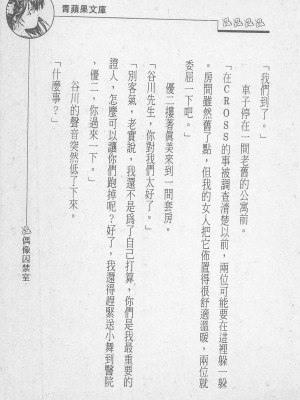 青蘋果文庫
「我們到了。」
車子停在一間老舊的公寓前。
「在CROSS的事被調查清楚以前，兩位可能要在這裡躲一躲
。房間雖然舊了點，但我的女人把它佈置得很舒適溫暖，兩位就
委屈一下吧。」
優二摟著眞美來到一間套房。
「谷川先生，你對我們太好了。」
「別客氣，老實說，我還不是爲了自己打算，你們是我最重要的
證人，怎麼可以讓你們跑掉呢？好了，我還得趕緊送小舞到醫院
，優二，你過來一下。」
谷川的聲音突然低了下來。
「什麼事？」
偶像囚禁室